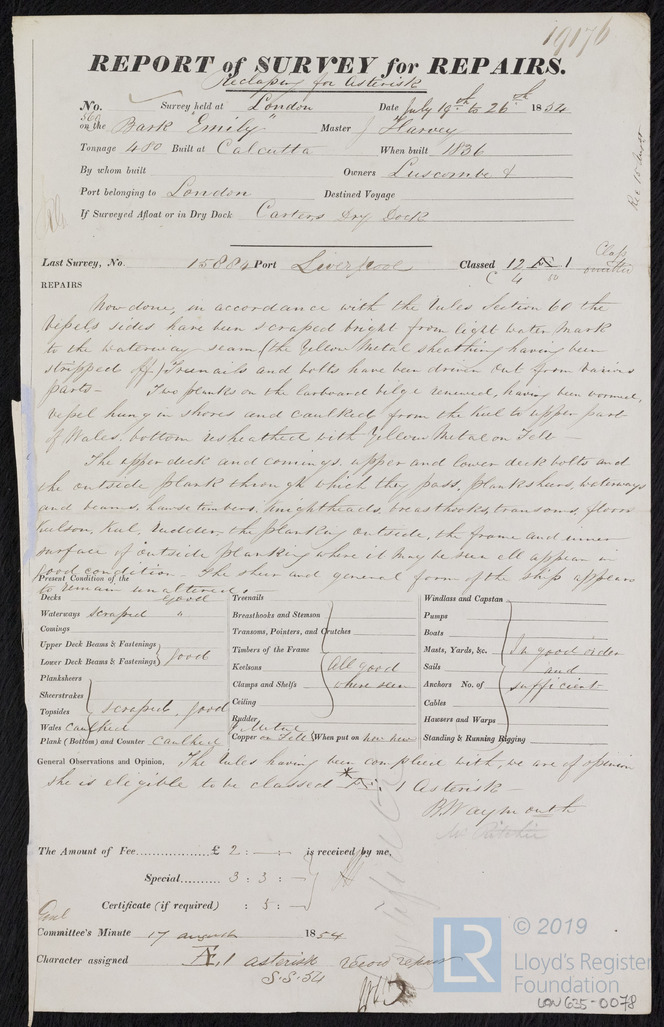 19176
REPORT of SURVEY for REPAIRS.
Reclassing for Asterisk
No. 560 Survey held at London Date July 19th to 26th 1854
on the Bark "Emily" Master Harvey
Tonnage 480 Built at Calcutta When built 1836
By whom built Owners Luscombe &
Port belonging to London Destined Voyage
If Surveyed Afloat or in Dry Dock Carters Dry Dock
Last Survey, No. 15884 Port Liverpool Classed 12 Æ 1 Class omitted
C 4 50
REPAIRS
Now done, in accordance with the Rules Section 60 the
Vessels sides have been scraped bright from light water mark
to the waterway seam (the Yellow Metal sheathing having been
stripped off.) Treenails and bolts have been driven out from various
parts— Two planks on the larboard bilge renewed, having been wormed,
vessel hung in shores and caulked from the Keel to upper part
of Wales. bottom resheathed with Yellow Metal on Felt—
The upper deck and comings. upper and lower deck bolts and
the outside plank through which they pass, plankshears, waterways
and beams, hawse timbers, Knightheads, breasthooks, transoms, floors
Keelson, Keel, Rudder, the planking outside, the frame and inner
surface of outside planking where it may be seen all appear in
good condition— The sheer and general form of the ship appears
to remain unaltered.
Present Condition of the
Decks good
Waterways scraped "
Comings
Upper Deck Beams & Fastenings
Lower Deck Beams & Fastenings good
Planksheers
Sheerstrakes
Topsides scraped, good
Wales Caulked
Plank (Bottom) and Counter Caulked
Treenails
Breasthooks and Stemson
Transoms, Pointers, and Crutches
Timbers of the Frame
Keelsons All good
Clamps and Shelfs where seen
Ceiling
Rudder
Y Metal
Copper on Felt When put on now new
Windlass and Capstan
Pumps
Boats
Masts, Yards, &c. In good order
Sails and
Anchors No. of sufficient
Cables
Hawsers and Warps
Standing & Running Rigging
General Observations and Opinion, The Rules having been complied with, we are of opinion
she is eligible to be classed * Æ 1 Asterisk—
B Waymouth
The Amount of Fee £ 2 : — : is received by me,
Special 3 : 3 : —
Certificate (if required) : 5 : —
Committee's Minute 17 August 1854
Character assigned Æ 1 asterisk record repairs
S.S.54
© 2019
LR
Lloyd's Register
Foundation
LON635-0078